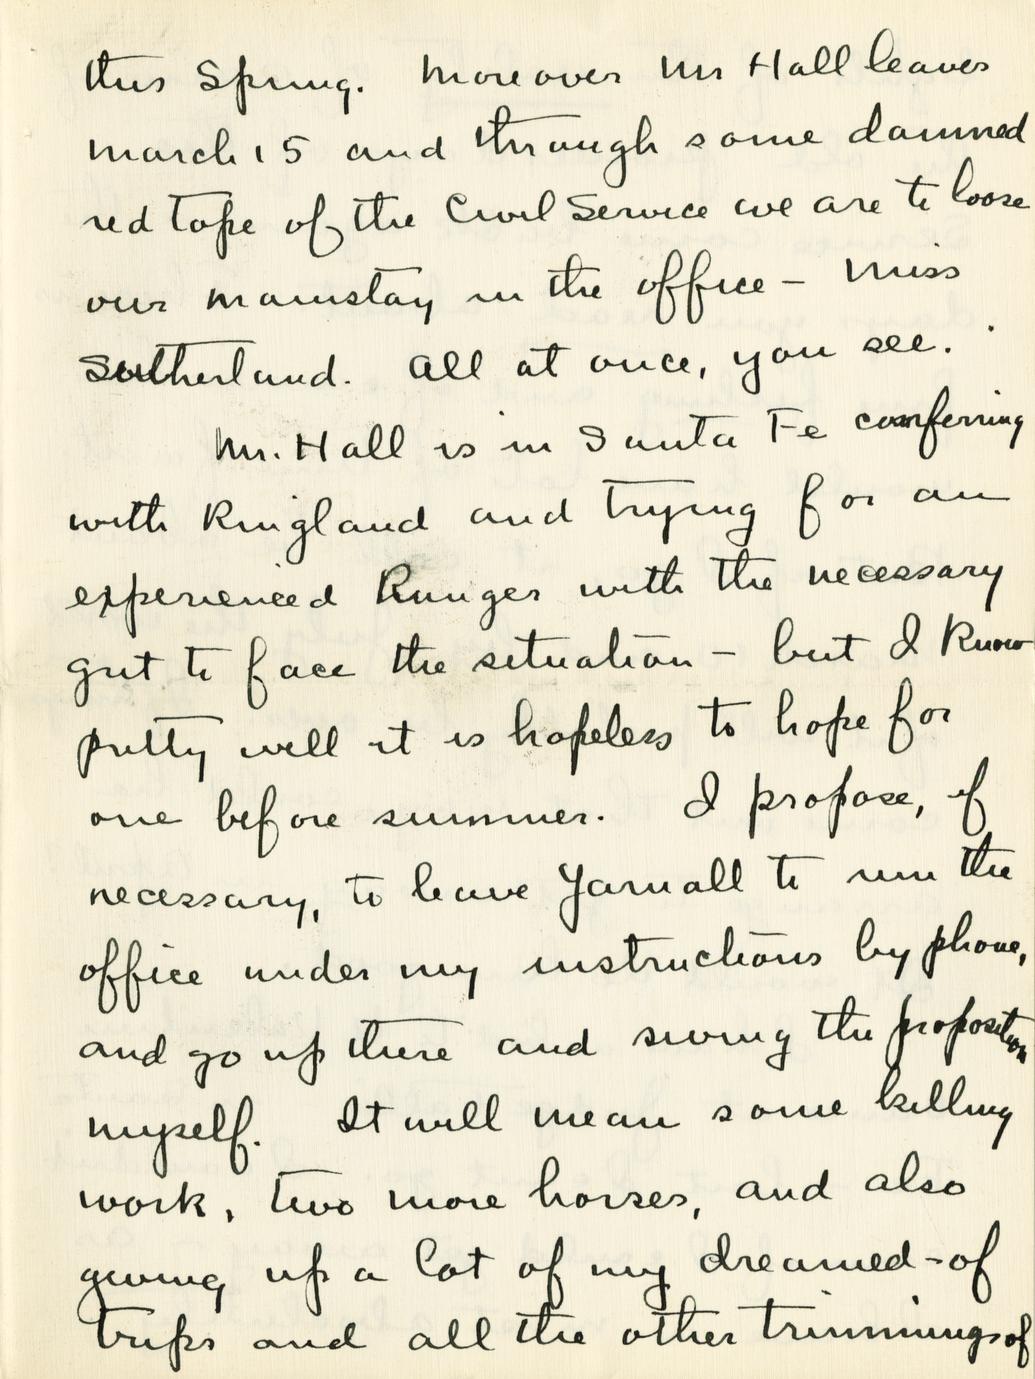 this Spring. Moreover Mr Hall leaves
March 15 and through some damned
red tape of the Civil Service we are to loose
our mainstay in the office – Miss
Sutherland. All at once, you see.
Mr. Hall is in Santa Fe conferring
with Ringland and trying for an
experienced Ranger with the necessary
grit to face the situation – but I know
pretty well it is hopeless to hope for
one before summer. I propose, if
necessary, to leave Yarnall to run the
office under my instructions by phone,
and go up there and swing the proposition
myself. It will mean some killing
work, two more horses, and also
giving up a lot of my dreamed-of
trips and all the other trimmings of